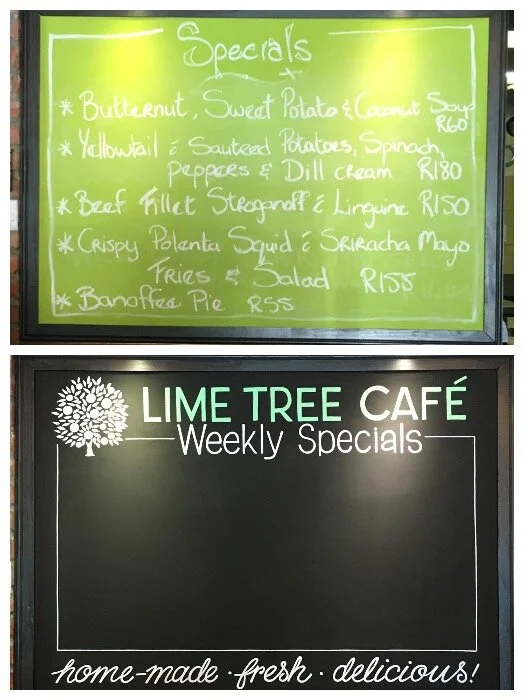 Specials
* Butternut, Sweet Potato & Coconut Soup
R60
* Yellowtail & Sauteed Potatoes, Spinach,
Peppers & Dill cream R180
* Beef Fillet Stroganoff & Linguine R150
* Crispy Polenta Squid & Sriracha Mayo
Fries & Salad R155
* Banoffee Pie R55
LIME TREE CAFÉ
Weekly Specials
home-made · fresh · delicious!